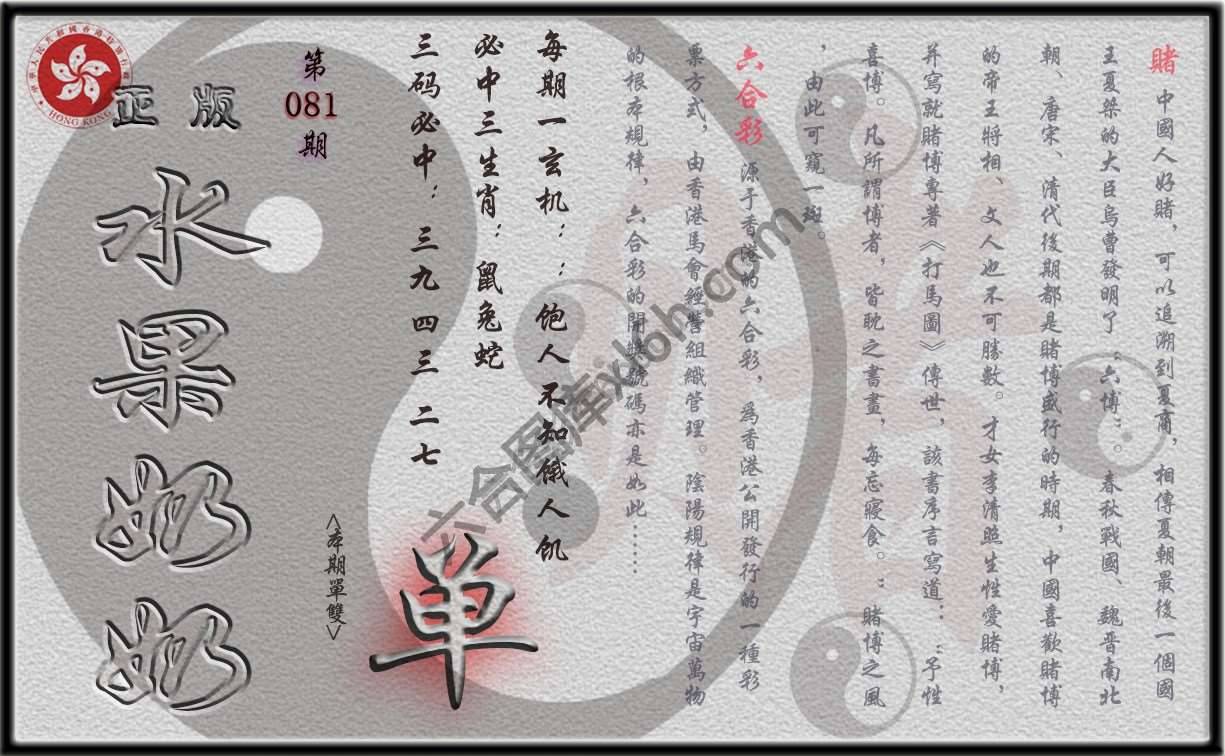 賭 中國人好賭，可以追溯到夏商，相傳夏朝最後一個國
王夏桀的大臣烏曹發明了“六博”。春秋戰國、魏晋南北
朝、唐宋、清代後期都是賭博盛行的時期，中國喜歡賭博
的帝王將相、文人也不可勝數。才女李清照生性愛賭博，
并寫就賭博專著《打馬圖》傳世，該書序言寫道：“予性
喜博。凡所謂博者，皆耽之書畫，每忘寢食。”賭博之風
，由此可窺一斑。
六合彩 源于香港的六合彩，爲香港公開發行的一種彩
票方式，由香港馬會經營組織管理。陰陽規律是宇宙萬物
的根本規律，六合彩的開獎號碼亦是如此……
每期一玄机：：飽人不知餓人飢
必中三生肖：鼠兔蛇
三码必中：三九 四三 二七
第
081
期
<本期單雙>
单
正版
水果奶奶
HONG KONG
六合图库xloh.com